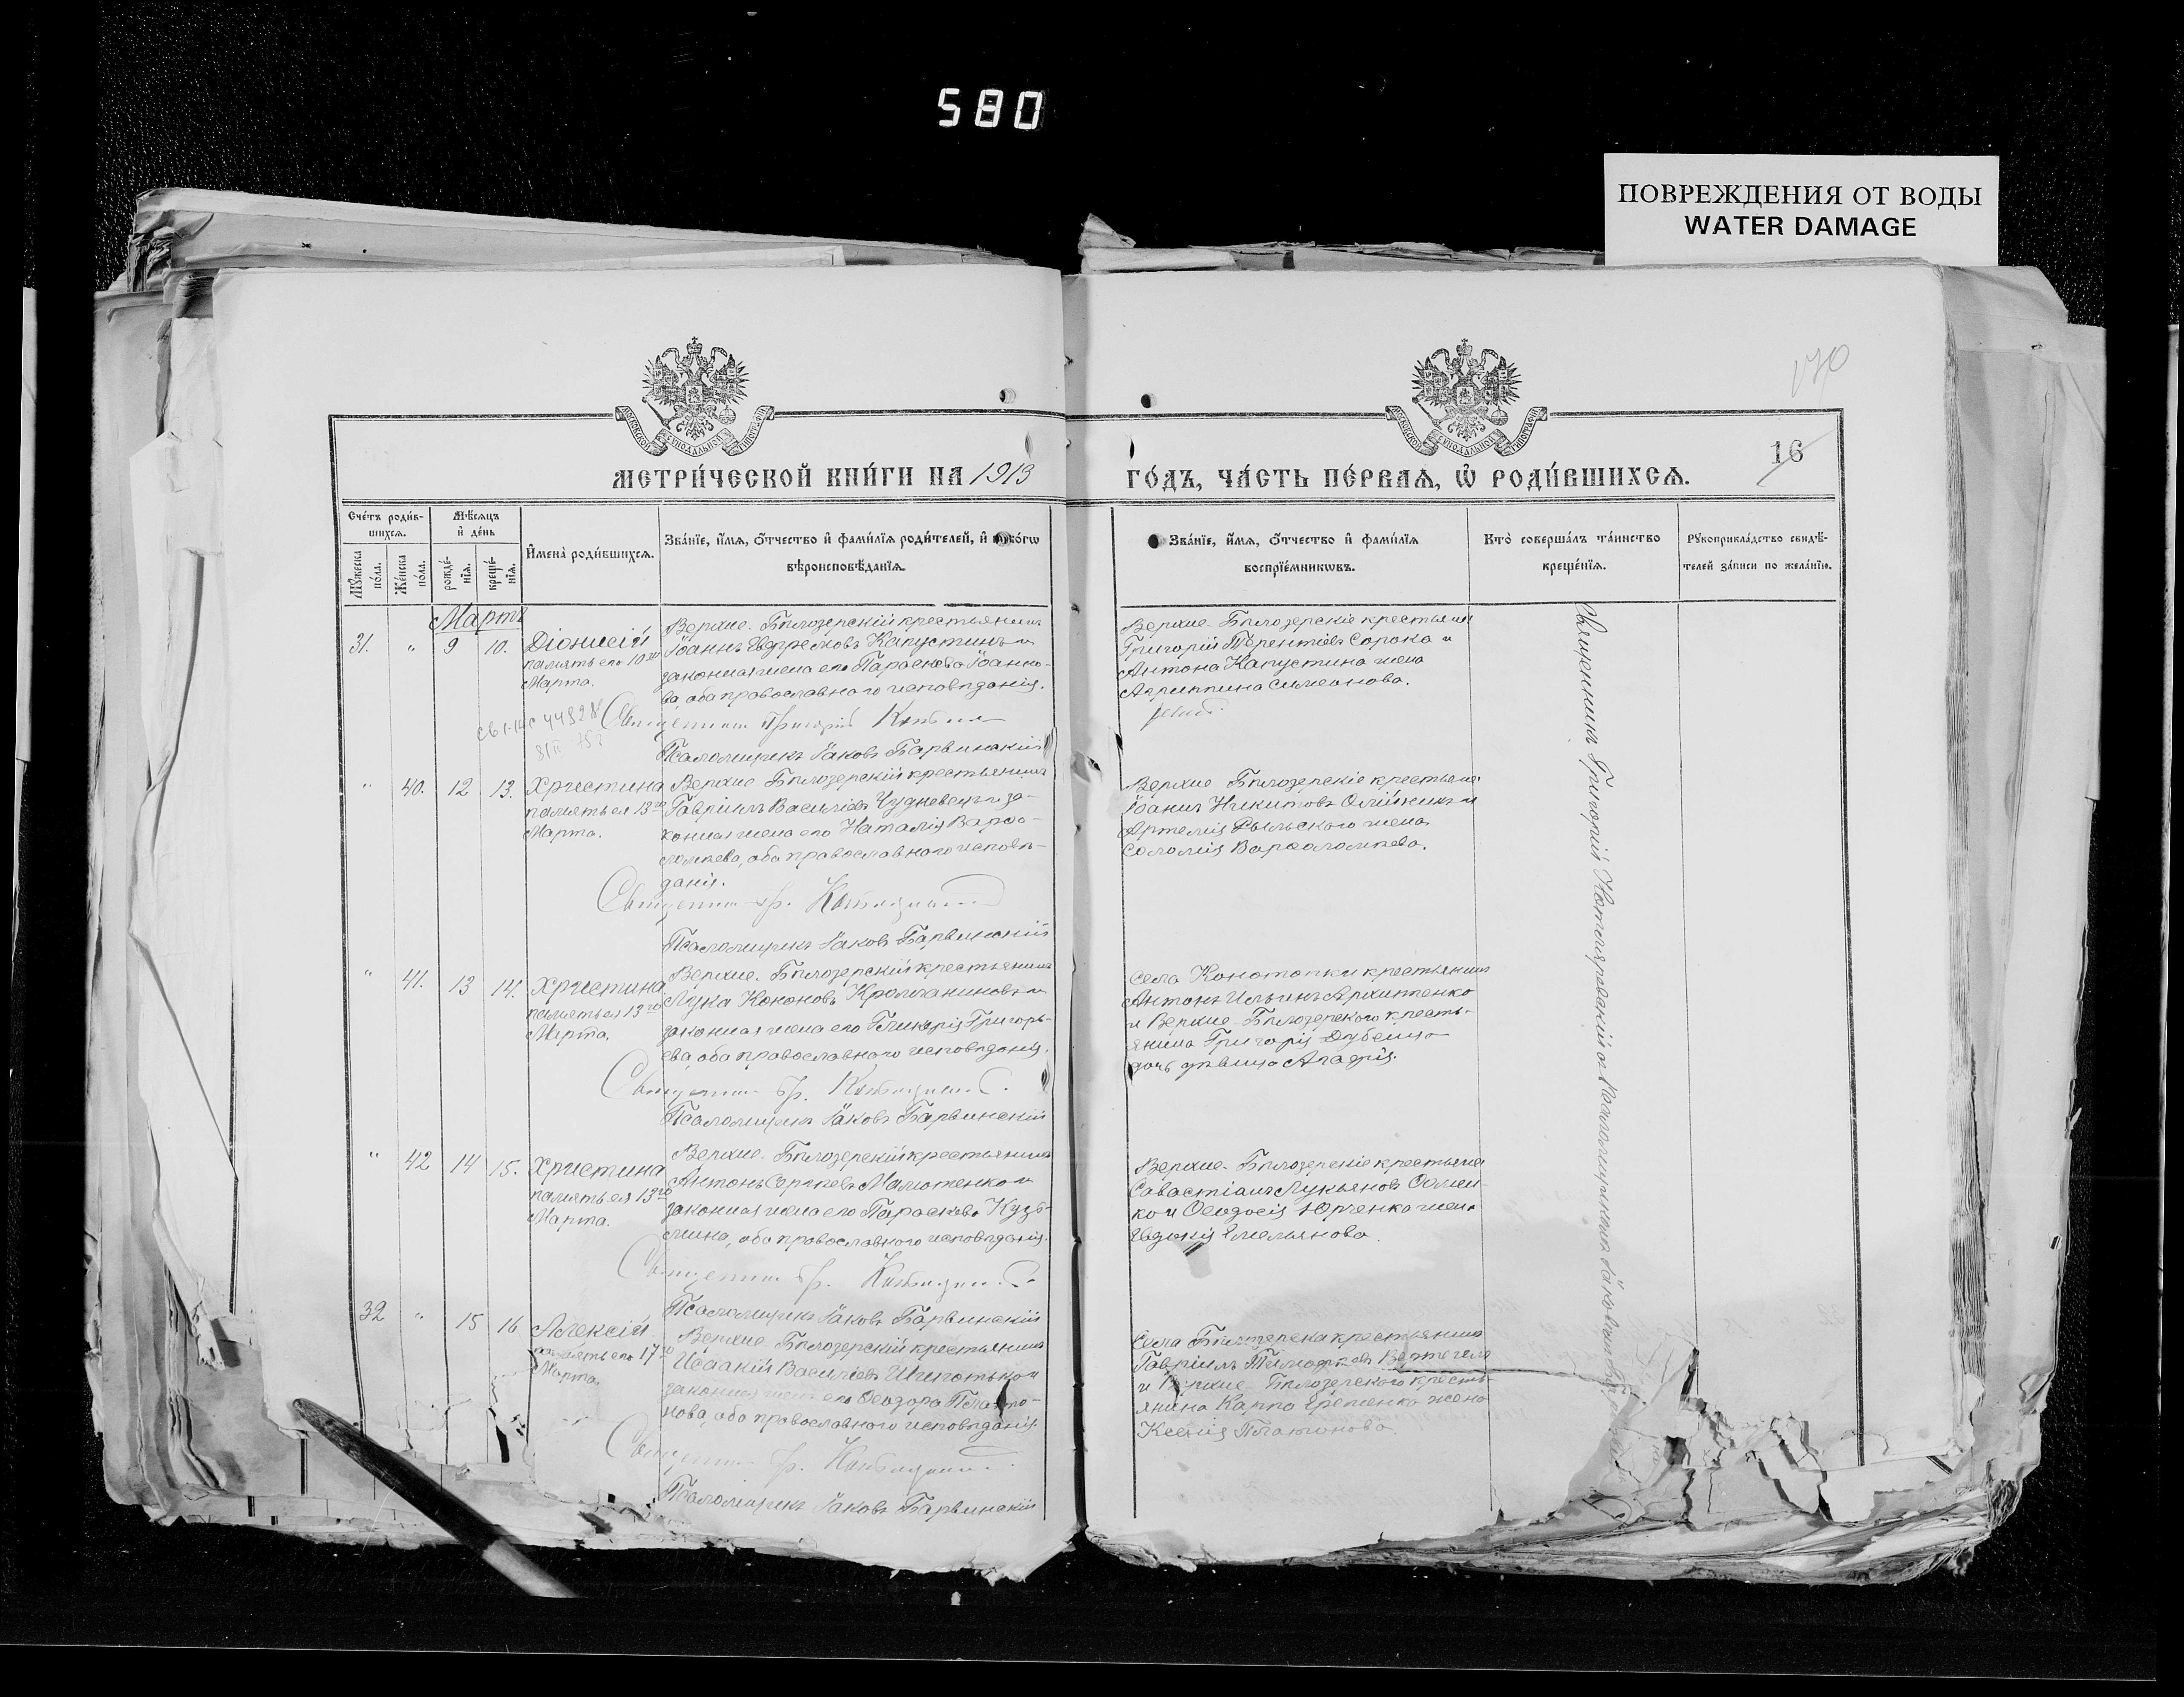 580
ПОВРЕЖДЕНИЯ ОТ ВОДЫ
WATER DAMAGE
170
16
МЕТРИ́ЧЕСКОЙ КНИ́ГИ НА 1913
ГО́ДЪ, ЧА́СТЬ ПЕ́РВАѦ, Ѡ҆ РОДИ́ВШИХСѦ.
Сче́тъ роди́в-
шихсѧ.
Мꙋ́жеска по́ла.
Же́нска по́ла.
Мѣ́сѧцъ
и҆ де́нь
рожде́-
нїѧ.
креще́-
нїѧ.
И҆мена̀ роди́вшихсѧ.
Зва́нїе, и҆́мѧ, ѻ҆́тчество и҆ фами́лїѧ роди́телей, и҆ како́гѡ
вѣроисповѣ́данїѧ.
Зва́нїе, и҆́мѧ, ѻ҆́тчество и҆ фами́лїѧ
воспрїе́мникѡвъ.
Кто̀ соверша́лъ та́инство
креще́нїѧ.
Рꙋкоприкла́дство свидѣ́-
телей за́писи по жела́нїю.
Мартъ
31. " 9 10. Діонисій
память его 10го
Марта.
Верхне-Бѣлозерскій крестьянинъ
Іоаннъ Евдремовъ Капустинъ и
законная жена его Параскева Іоанно-
ва, оба православного исповѣданія.
Священникъ Григорій
Псаломщикъ Іаковъ Барвинскій
Верхне-Бѣлозерскіе крестьяне
Григорій Терентіевъ Сорока и
Антона Капустина жена
Агриппина Симеонова.
" 40. 12 13. Христина
память ея 13го
Марта.
Верхне Бѣлозерскій крестьянинъ
Гавріилъ Василіевъ Чудневецъ и за-
конная жена его Наталія Варѳо-
ломѣева, оба православного исповѣ-
данія.
Священникъ Гр.
Псаломщикъ Іаковъ Барвинскій
Верхне Бѣлозерскіе крестьяне
Іоаннъ Никитовъ Олійникъ и
Артемія Рыльского жена
Соломія Варѳоломѣева.
" 41. 13 14. Христина
память ея 13го
Марта.
Верхне-Бѣлозерскій крестьянинъ
Лука Кононовъ Кромчаниновъ и
законная жена его Гликерія Григорь-
ева, оба православного исповѣданія.
Священникъ Гр.
Псаломщикъ Іаковъ Барвинскій
Села Конотопки крестьянинъ
Антонъ Ильинъ Архипенко
и Верхне-Бѣлозерского кресть-
янина Григорія Дубенца
дочь дѣвица Агафія.
" 42 14 15. Христина
память ея 13го
Марта.
Верхне-Бѣлозерскій крестьянинъ
Антонъ Сергѣевъ Малютенко и
законная жена его Параскева Кузь-
мина, оба православного исповѣданія.
Священникъ Гр.
Псаломщикъ Іаковъ Барвинскій
Верхне-Бѣлозерскіе крестьяне
Савастіанъ Лукьяновъ Семен-
ко и Ѳеодосія Юрченка жена
Евдокія Емельянова.
32 " 15 16 Алексій
память его 17го
Марта.
Верхне Бѣлозерскій крестьянинъ
Исаакій Василіевъ Шепотько и
законная жена его Ѳеодора Плато-
нова, оба православного исповѣданія.
Священникъ Гр.
Псаломщикъ Іаковъ Барвинскій
Села Бѣлозерска крестьянинъ
Гавріилъ Тимоѳеевъ Вертегелъ
и Верхне-Бѣлозерского кресть-
янина Карпа Еременка жена
Ксенія Платонова.
Священникъ Григорій съ Псаломщикомъ Іаковомъ